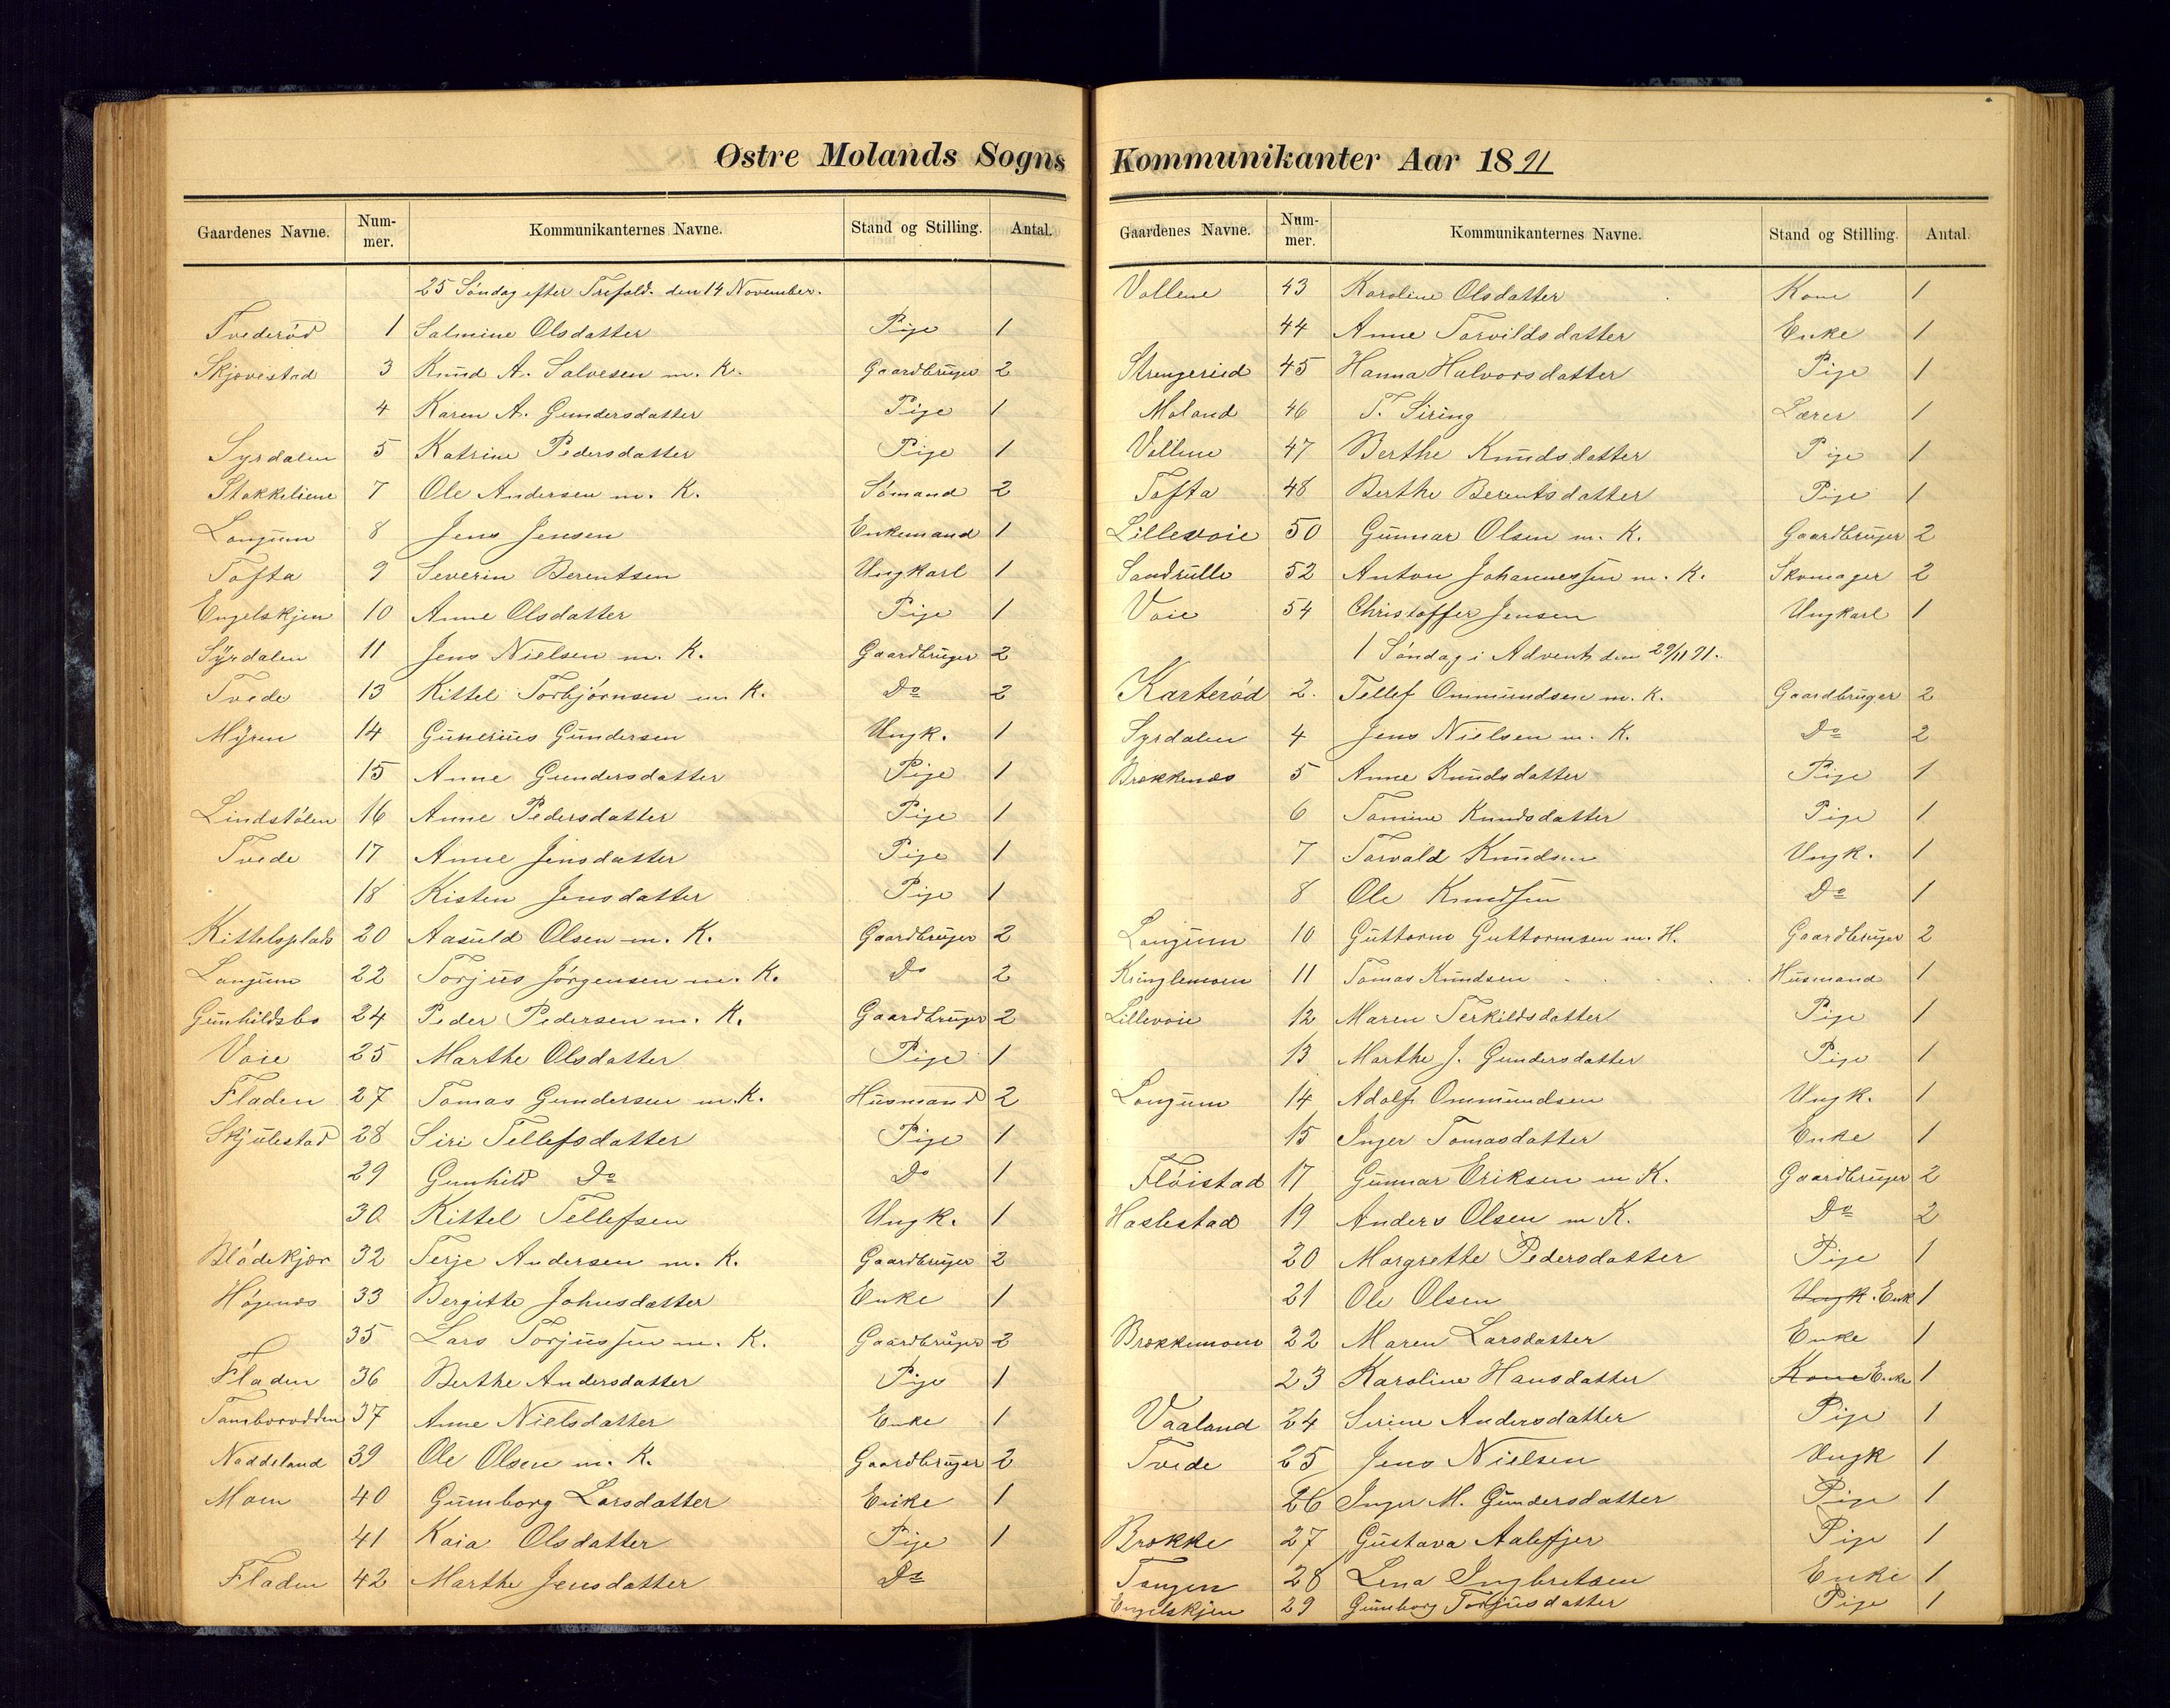 Østre Molands Sogns
Gaardenes Navne. Num-mer. Kommunikanternes Navne. Stand og Stilling. Antal.
25 Søndag efter Trefold. den 14 November.
Tvederød 1 Salmine Olsdatter Pige 1
Skjævestad 3 Knud A. Salvesen m. K. Gaardbruger 2
4 Karen A. Gundersdatter Pige 1
Syrdalen 5 Katrine Pedersdatter Pige 1
Stokkeliene 7 Ole Andersen m. K. Sømand 2
Langum 8 Jens Jensen Enkemand 1
Tofta 9 Severin Berentsen Ungkarl 1
Engelskjen 10 Anne Olsdatter Pige 1
Syrdalen 11 Jens Nielsen m. K. Gaardbruger 2
Tvede 13 Kittel Torbjørnsen m K. Do 2
Myren 14 Gunerius Gundersen Ungk. 1
15 Anne Gundersdatter Pige 1
Lindstølen 16 Anne Pedersdatter Pige 1
Tvede 17 Anne Jensdatter Pige 1
18 Kisten Jensdatter Pige 1
Kittelsplads 20 Aasuld Olsen m. K. Gaardbruger 2
Langum 22 Torjus Jørgensen m. K. Do 2
Gunhildsbo 24 Peder Pedersen m. K. Gaardbruger 2
Vaie 25 Marthe Olsdatter Pige 1
Fladen 27 Tomas Gundersen m. K. Husmand 2
Skjulestad 28 Siri Tellefsdatter Pige 1
29 Gunhild Do Do 1
30 Kittel Tellefsen Ungk. 1
Blødekjær 32 Terje Andersen m. K. Gaardbruger 2
Høgenes 33 Bergitte Johnsdatter Enke 1
35 Lars Torjussen m. K. Gaardbruger 2
Fladen 36 Berthe Andersdatter Pige 1
37 Anne Nielsdatter Enke 1
Naddeland 39 Ole Olsen m. K. Gaardbruger 2
Moen 40 Gumborg Larsdatter Enke 1
41 Kaia Olsdatter Pige 1
Fladen 42 Marthe Jensdatter Do
Kommunikanter Aar 1891
Gaardenes Navne. Num-mer. Kommunikanternes Navne. Stand og Stilling. Antal.
Vollene 43 Karoline Olsdatter Kone 1
44 Anne Torvildsdatter Enke 1
Strengeried 45 Hanna Halvorsdatter Pige 1
Moland 46 T. Siring Lærer 1
Vollene 47 Berthe Knudsdatter Pige 1
Tofta 48 Berthe Berentsdatter Pige 1
Lillevoie 50 Gunnar Olsen m. K. Gaardbruger 2
Sandrulle 52 Anton Johannessen m. K. Skomager 2
Voie 54 Christoffer Jensen Ungkarl 1
1 Søndag i Advent den 29/11 91.
Karterød 2. Tellef Ommundsen m. K. Gaardbruger 2
Syrdalen 4 Jens Nielsen m. K. Do 2
Brækkenes 5 Anne Knudsdatter Pige 1
6 Tomine Knudsdatter Pige 1
7 Torvald Knudsen Ungk. 1
8 Ole Knudsen Do 1
Langum 10 Guttorm Guttormsen m. H. Gaardbruger 2
Kringlemoen 11 Tomas Knudsen Husmand 1
Lillevoie 12 Maren Terkildsdatter Pige 1
13 Marthe J. Gundersdatter Pige 1
Longum 14 Adolf Ommundsen Ungk. 1
15 Inger Tomasdatter Enke 1
Fløistad 17 Gunnar Eriksen m K. Gaardbruger 2
Haslestad 19 Anders Olsen m K. Do 2
20 Margrethe Pedersdatter Pige 1
21 Ole Olsen Ungk. Enk 1
Brækkemoen 22 Maren Larsdatter Enke 1
23 Karoline Hansdatter Kone Enke 1
Vaaland 24 Serine Andersdatter Pige 1
Tvede 25 Jens Nielsen Ungk 1
26 Inger M. Gundersdatter Pige 1
Brække 27 Gustava Aalefjer Pige 1
Tangen 28 Lena Ingbretsen Enke 1
Engelskjen 29 Gumborg Torjusdatter Pige 1